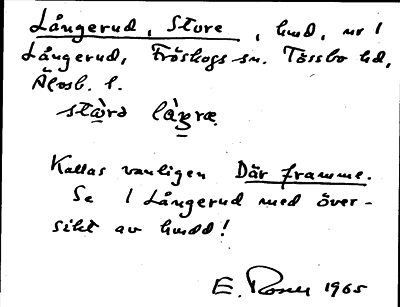 Långerud, Store, hmd, nr 1
Långerud, Fröskogs sn. Tössbo hd,
Älvsb. l.
Kallas vanligen Där framme.
Se 1 Långerud med över-
sikt av hmdd!
E. Rosén 1965